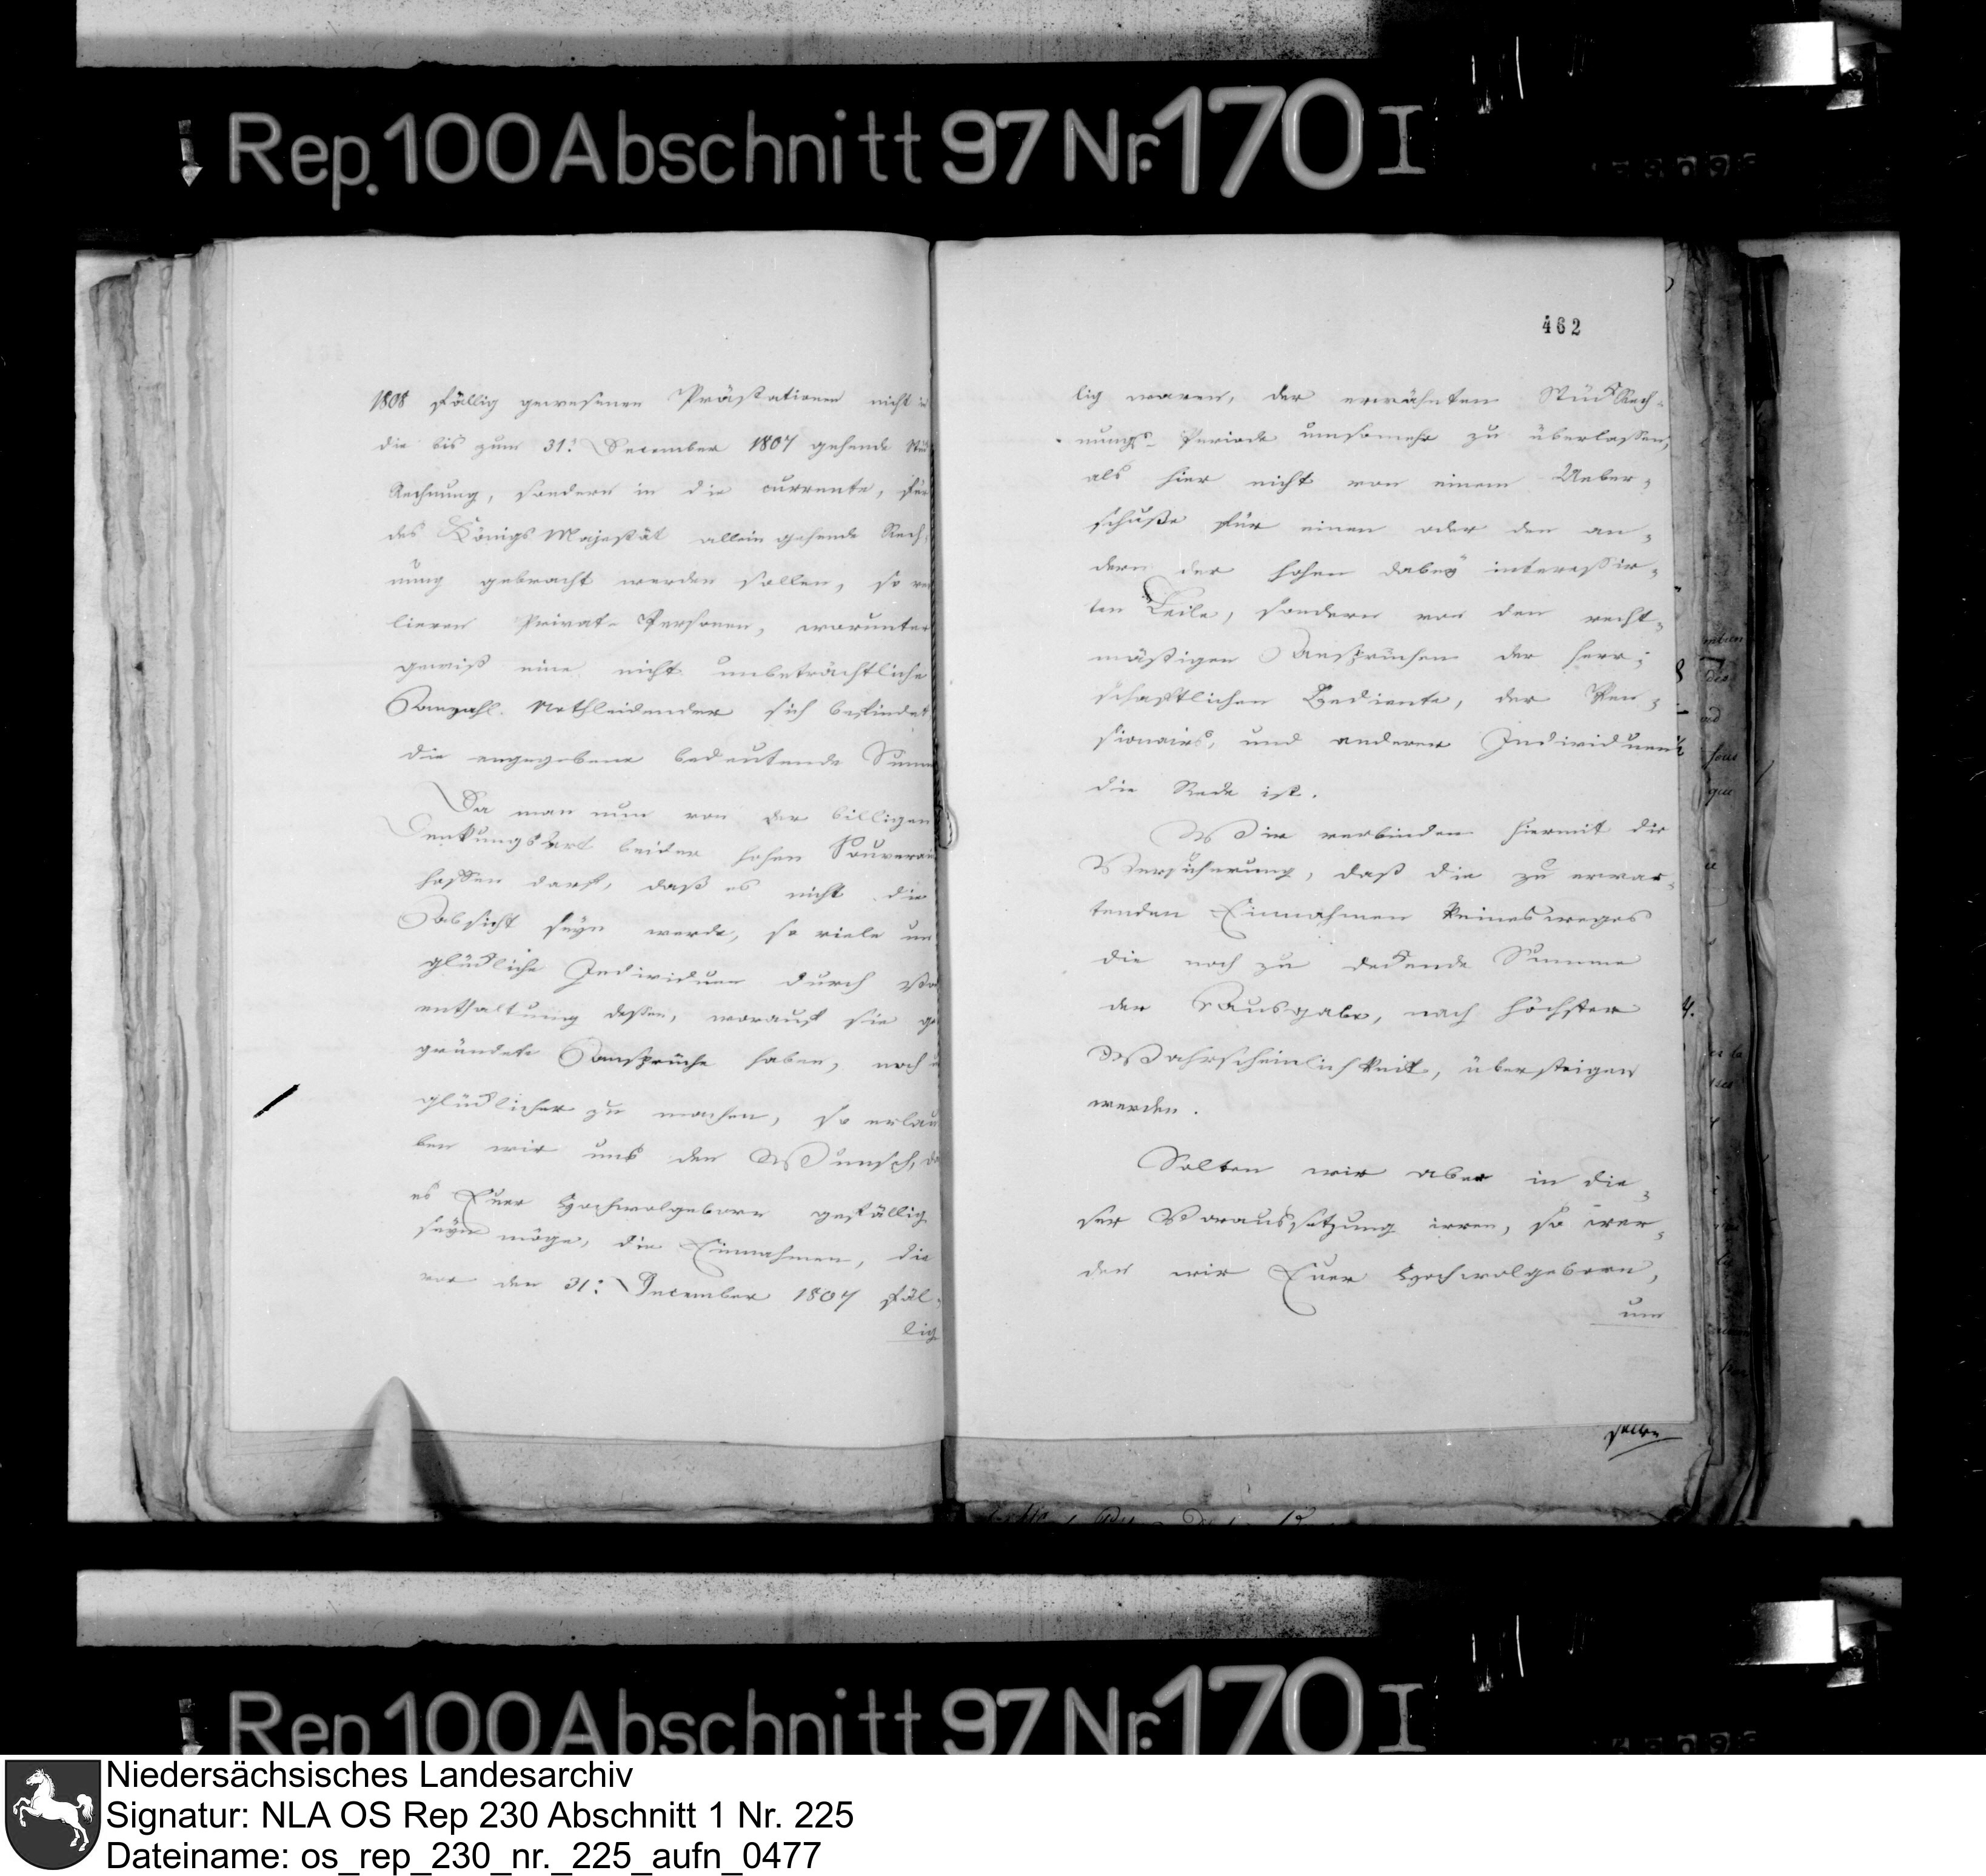 Rep. 100 Abschnitt 97 Nr. 170 I
1808 fällig gewesenen Prästationen nicht in
die bis zum 31: December 1807 gehende Stück
Rechnung, sondern in die currente, für
des Königs Majestät allein gehende Rech-
nung gebracht werden sollen, so ver
lieren Privat-Personen, worunter
gewiß eine nicht unbeträchtliche
Anzahl Nothleidender sich befindet
die angegebene bedeutende Summe
Da man nun von der billigen
Denkungsart beider hohen Souverains
hoffen darf, daß es nicht die
Absicht seyn werde, so viele un
glückliche Individuen durch Vor
enthaltung dessen, worauf sie ge
gründete Ansprüche haben, noch
glücklicher zu machen, so erlau
ben wir uns den Wunsch, daß
es Euer Hochwolgeborn gefällig
seyn möge, die Einnahmen, die
vor den 31: December 1807 fäl-
lig
462
lig waren, der erwähnten Stück Rech-
nungs-Periode umsomehr zu überlassen,
als hier nicht von einem Ueber-
schuße für einen oder den an-
dern der hohen dabey interessir-
ten Theile, sondern von den recht-
mäßigen Ansprüchen der herr-
schaftlichen Bediente, der Pen-
sionairs, und anderer Individuen
die Rede ist.
Wir verbinden hiermit die
Versicherung, daß die zu erwar-
tenden Einnahmen keinesweges
die noch zu deckende Summe
der Ausgabe, nach höchster
Wahrscheinlichkeit, übersteigen
werden.
Solten wir aber in die-
ser Voraussetzung irren, so wer-
den wir Euer Hochwolgeborn,
um
Rep 100 Abschnitt 97 Nr. 170 I
Niedersächsisches Landesarchiv
Signatur: NLA OS Rep 230 Abschnitt 1 Nr. 225
Dateiname: os_rep_230_nr._225_aufn_0477